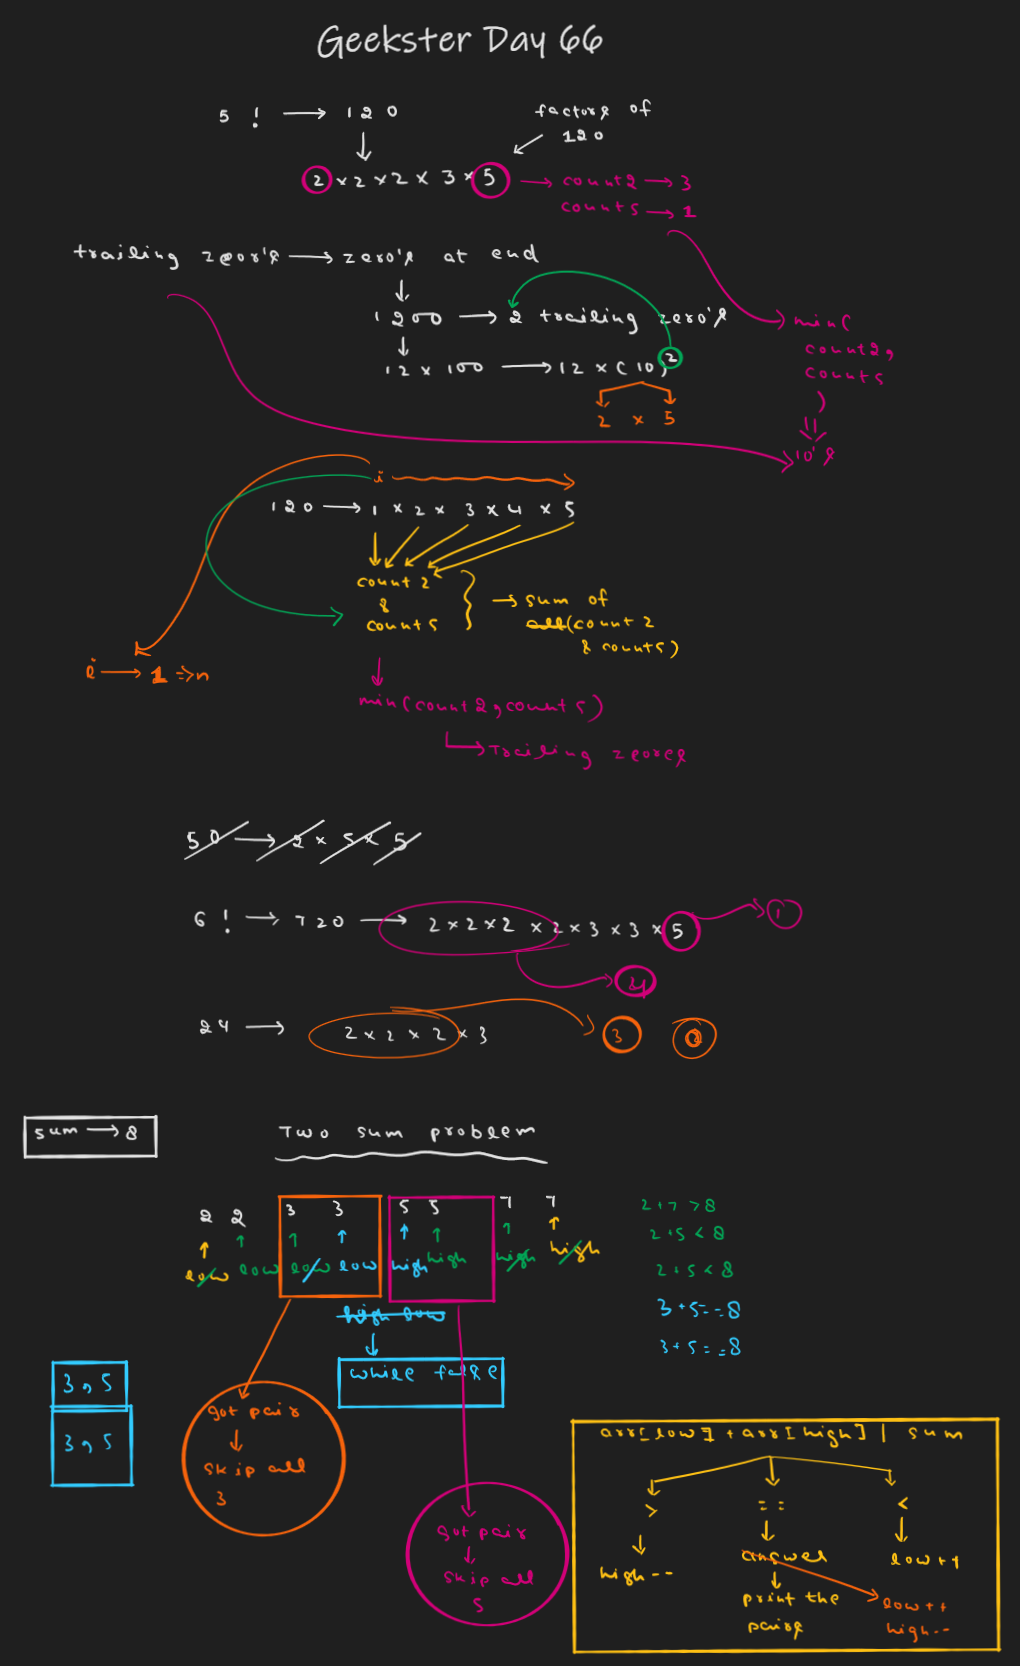 Geekster Day 66
5 ! → 120
factors of
120
2 × 2 × 2 × 3 × 5 → count2 → 3
count5 → 1
trailing zeor's → zero's at end
1200 → 2 trailing zero's
12 × 100 → 12 × (10)2
2 × 5
min(
count2,
count5
)
10's
i
120 → 1 × 2 × 3 × 4 × 5
count 2
&
count 5
→ sum of
all(count 2
& count5)
i → 1 => n
min(count2, count5)
Trailing zeores
50 → 2 × 5 × 5
6 ! → 720 → 2 × 2 × 2 × 2 × 3 × 3 × 5 → 1
4
24 → 2 × 2 × 2 × 3 → 3
sum → 8
Two sum problem
2 2 3 3 5 5 7 7
low low low low high high high high
high low
while false
2 + 7 > 8
2 + 5 < 8
2 + 5 < 8
3 + 5 == 8
3 + 5 == 8
3, 5
3, 5
got pair
skip all
3
got pair
skip all
5
arr[low] + arr[high] | sum
> == <
high-- answer low++
print the
pairs
low++
high--